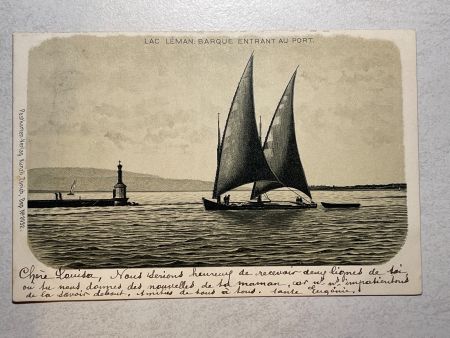 LAC LÉMAN. BARQUE ENTRANT AU PORT.
Postkarten-Verlag Künzli, Zürich,
Chère Louisa, Nous serions heureux de recevoir deux lignes de toi
où tu nous donnes des nouvelles de ta maman, car n. n. impatientons
de la savoir debout. Amitiés de tous à tous. tante Eugénie.